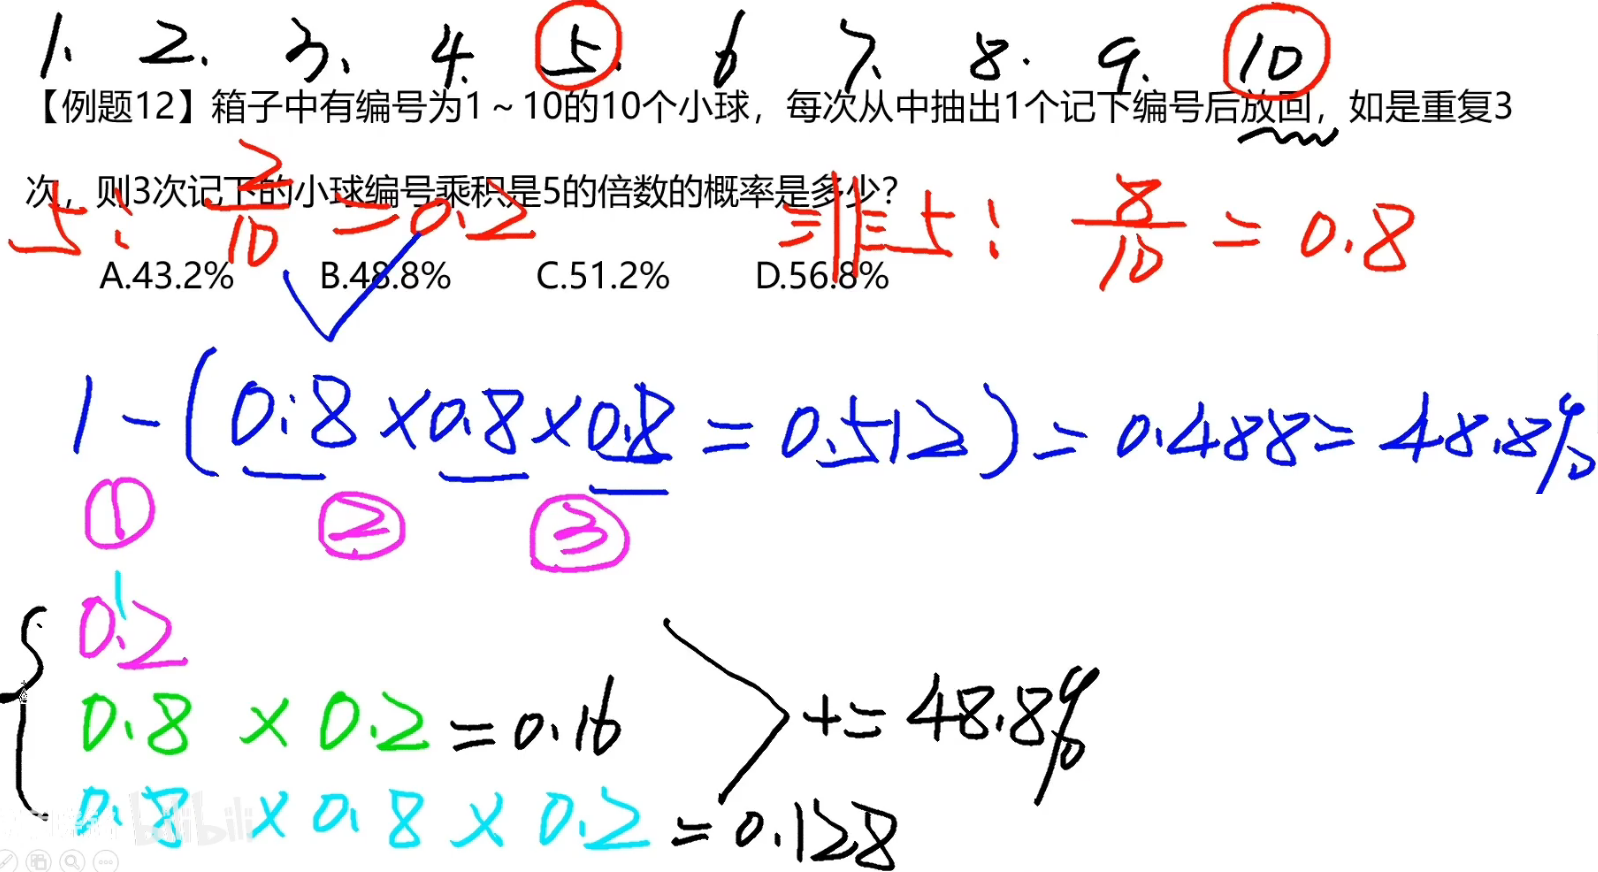 1. 2. 3. 4. 5. 6 7. 8. 9. 10
【例题12】箱子中有编号为1～10的10个小球，每次从中抽出1个记下编号后放回，如是重复3
次，则3次记下的小球编号乘积是5的倍数的概率是多少？
5: 2/10 =0.2 非5: 8/10 = 0.8
A.43.2% B.48.8% C.51.2% D.56.8%
1-(0.8×0.8×0.8=0.512)=0.488=48.8%
① ② ③
0.2
0.8 × 0.2=0.16 += 48.8%
0.8 × 0.8 × 0.2 =0.128
bilibili